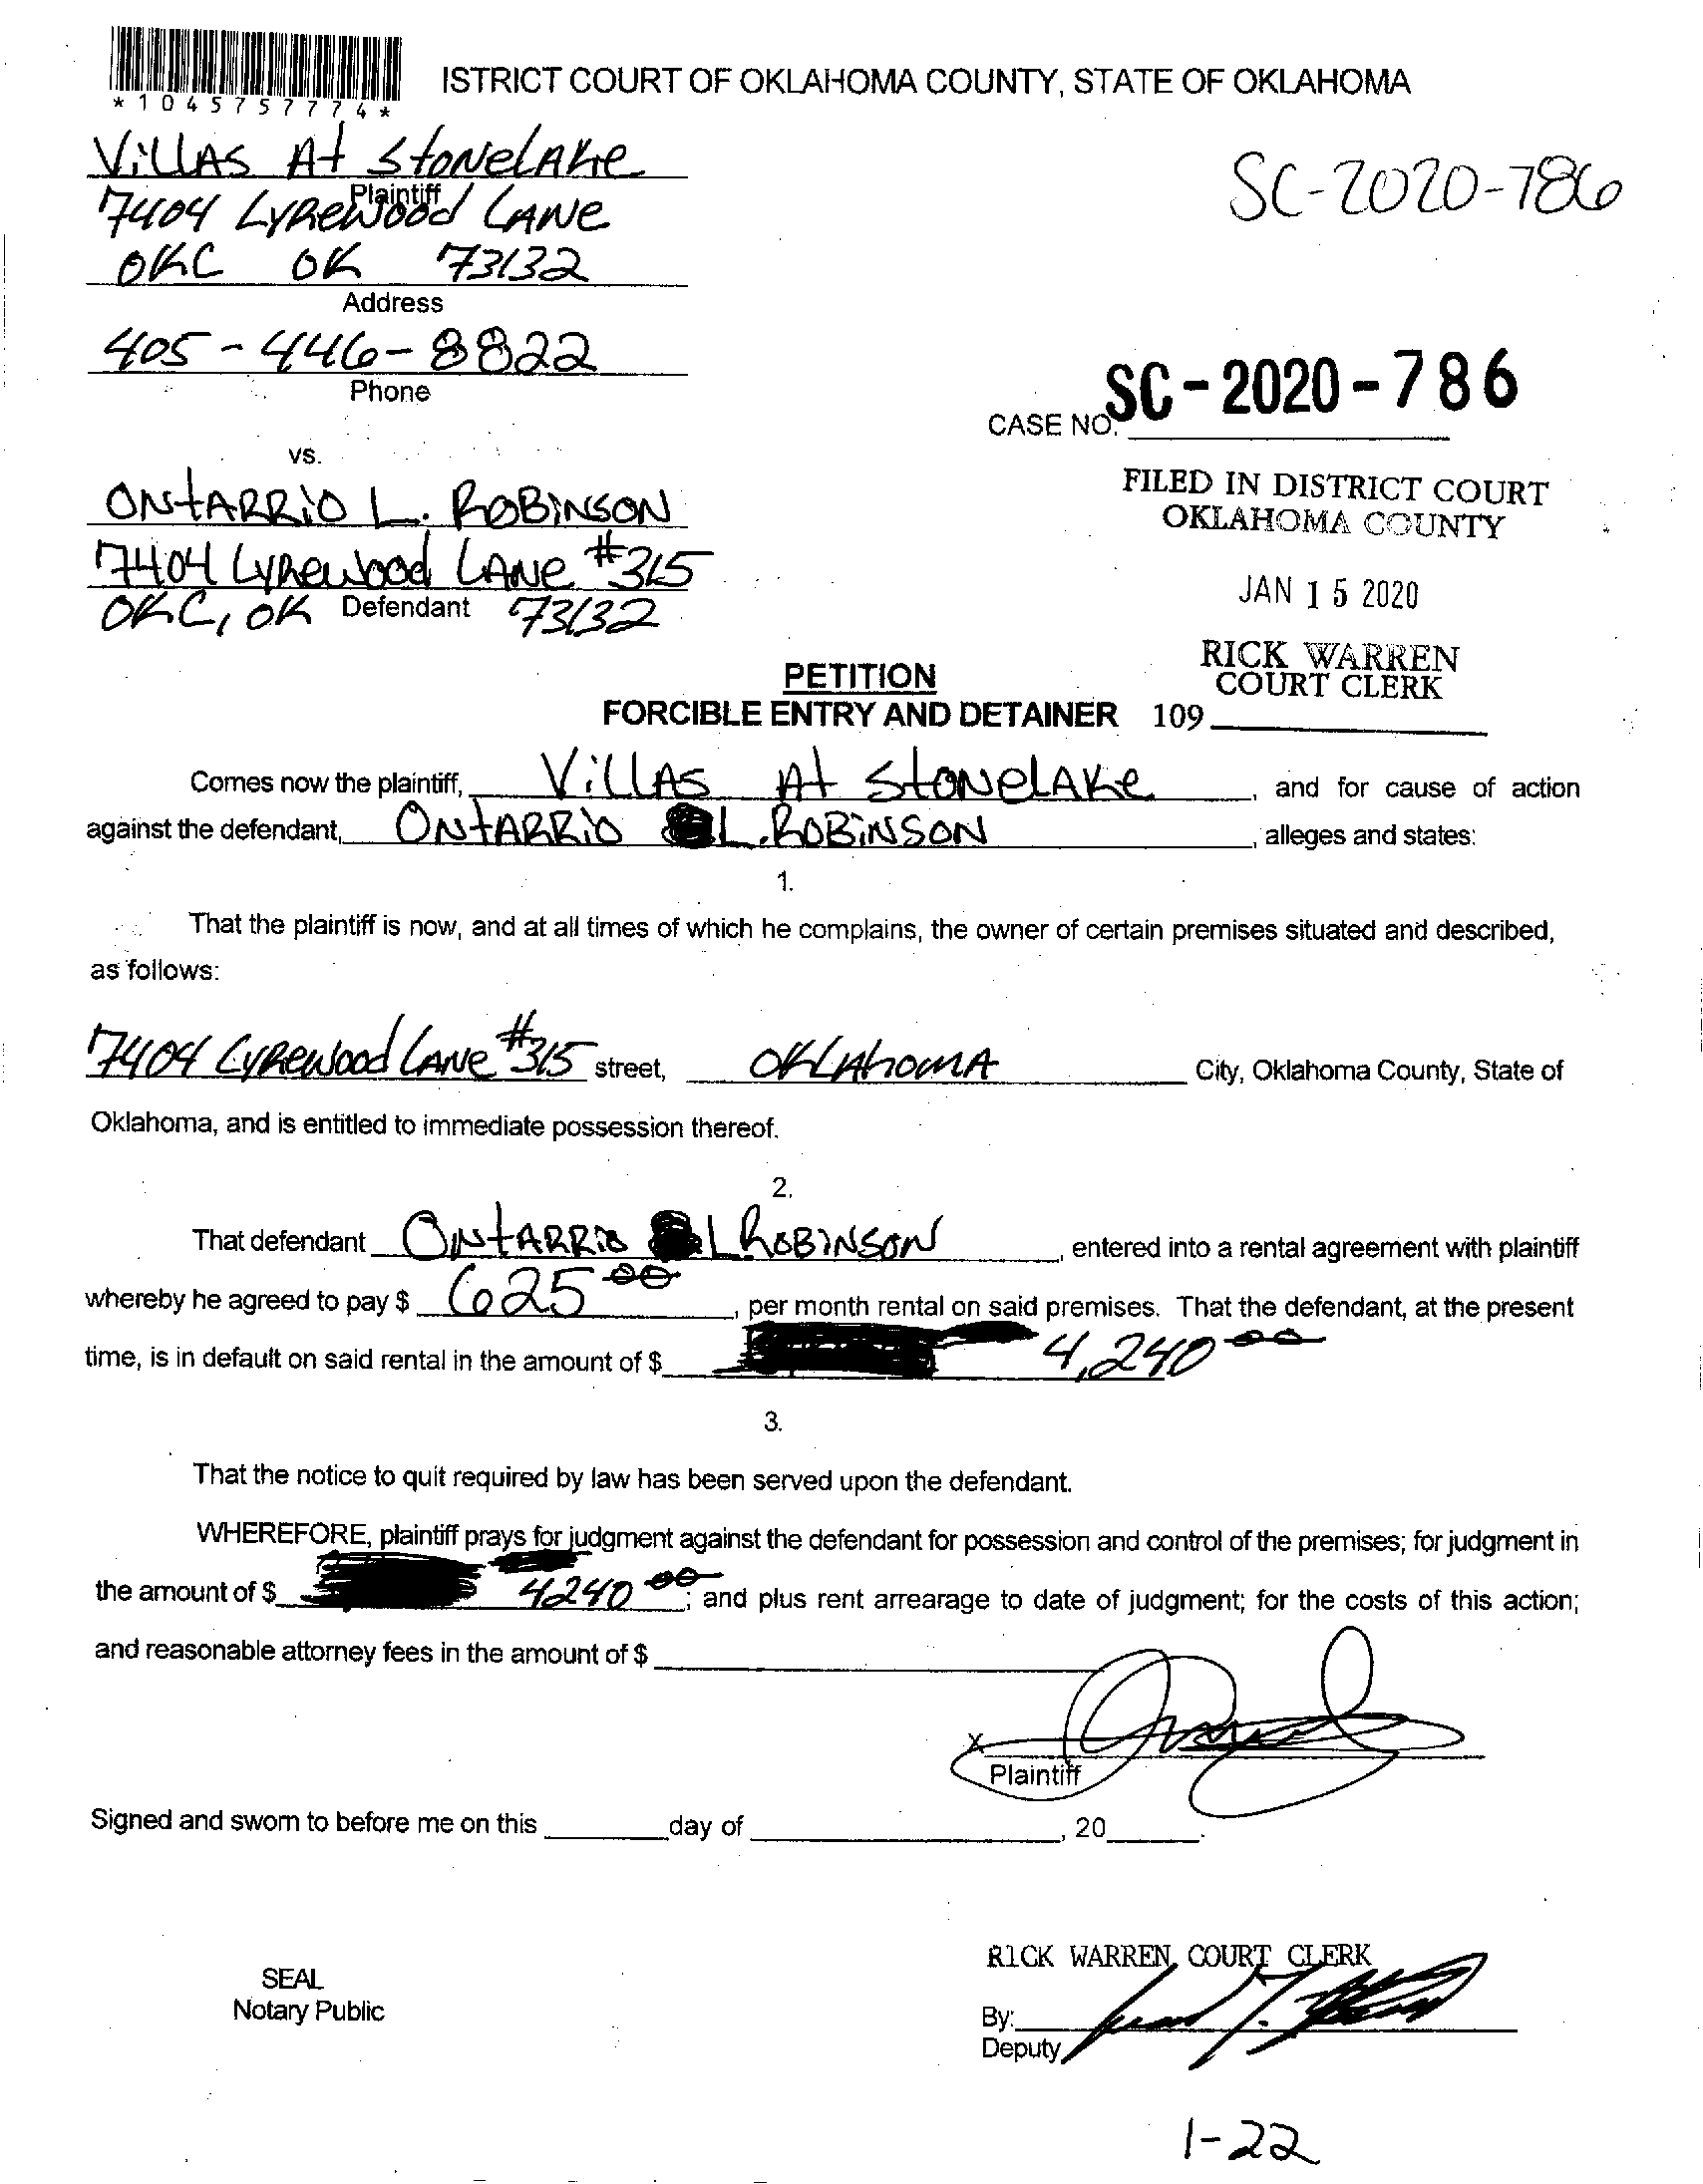 *1045757774*
ISTRICT COURT OF OKLAHOMA COUNTY, STATE OF OKLAHOMA
VillAS At StoNelAke
Plaintiff
7404 LyRewood LANe
OKC OK 73132
Address
405-446-8822
Phone
SC-2020-786
CASE NO. SC-2020-786
vs.
FILED IN DISTRICT COURT
OKLAHOMA COUNTY
JAN 15 2020
RICK WARREN
COURT CLERK
109
ONtARRiO L. ROBiNSON
7404 LyRewood LANe #315
OKC, OK Defendant 73132
PETITION
FORCIBLE ENTRY AND DETAINER
Comes now the plaintiff, VillAS At StoNelAke, and for cause of action
against the defendant, ONtARRiO L. ROBiNSON, alleges and states:
1.
That the plaintiff is now, and at all times of which he complains, the owner of certain premises situated and described,
as follows:
7404 LyRewood LANe #315 street, OKLAhomA City, Oklahoma County, State of
Oklahoma, and is entitled to immediate possession thereof.
2.
That defendant ONtARRiO L ROBiNSON, entered into a rental agreement with plaintiff
whereby he agreed to pay $ 625 00, per month rental on said premises. That the defendant, at the present
time, is in default on said rental in the amount of $ 4,240 00
3.
That the notice to quit required by law has been served upon the defendant.
WHEREFORE, plaintiff prays for judgment against the defendant for possession and control of the premises; for judgment in
the amount of $ 4240 00; and plus rent arrearage to date of judgment; for the costs of this action;
and reasonable attorney fees in the amount of $
X
Plaintiff
Signed and sworn to before me on this day of , 20 .
RICK WARREN, COURT CLERK
SEAL
Notary Public
By:
Deputy
1-22